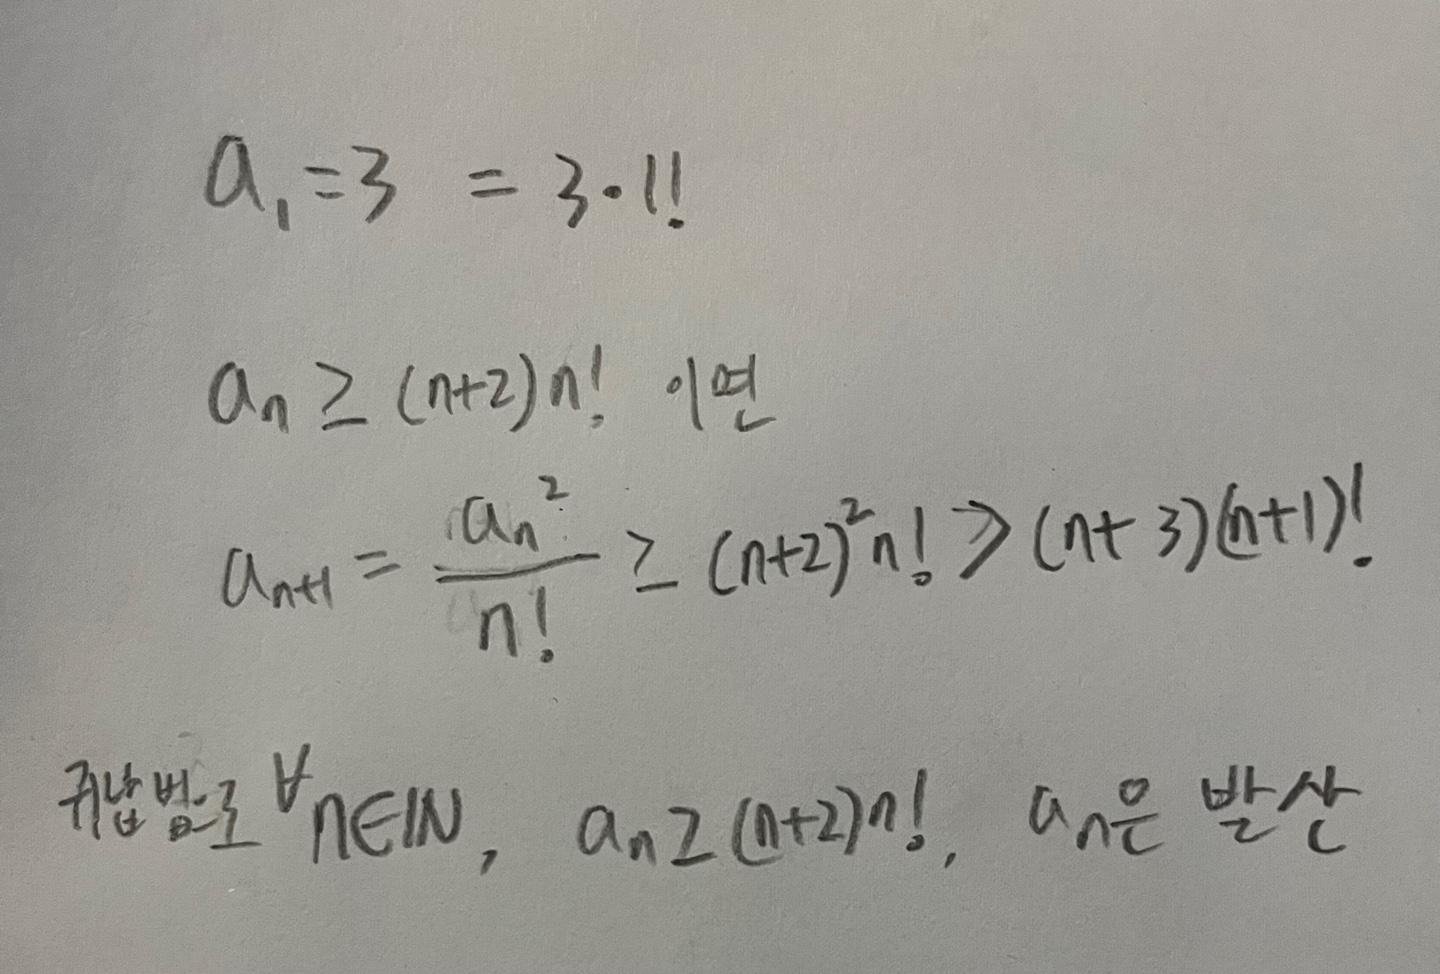 a₁ = 3 = 3·1!
aₙ ≥ (n+2)n! 이면
aₙ₊₁ = aₙ²/n! ≥ (n+2)²n! > (n+3)(n+1)!
귀납법으로 ∀n∈ℕ, aₙ ≥ (n+2)n!, aₙ은 발산